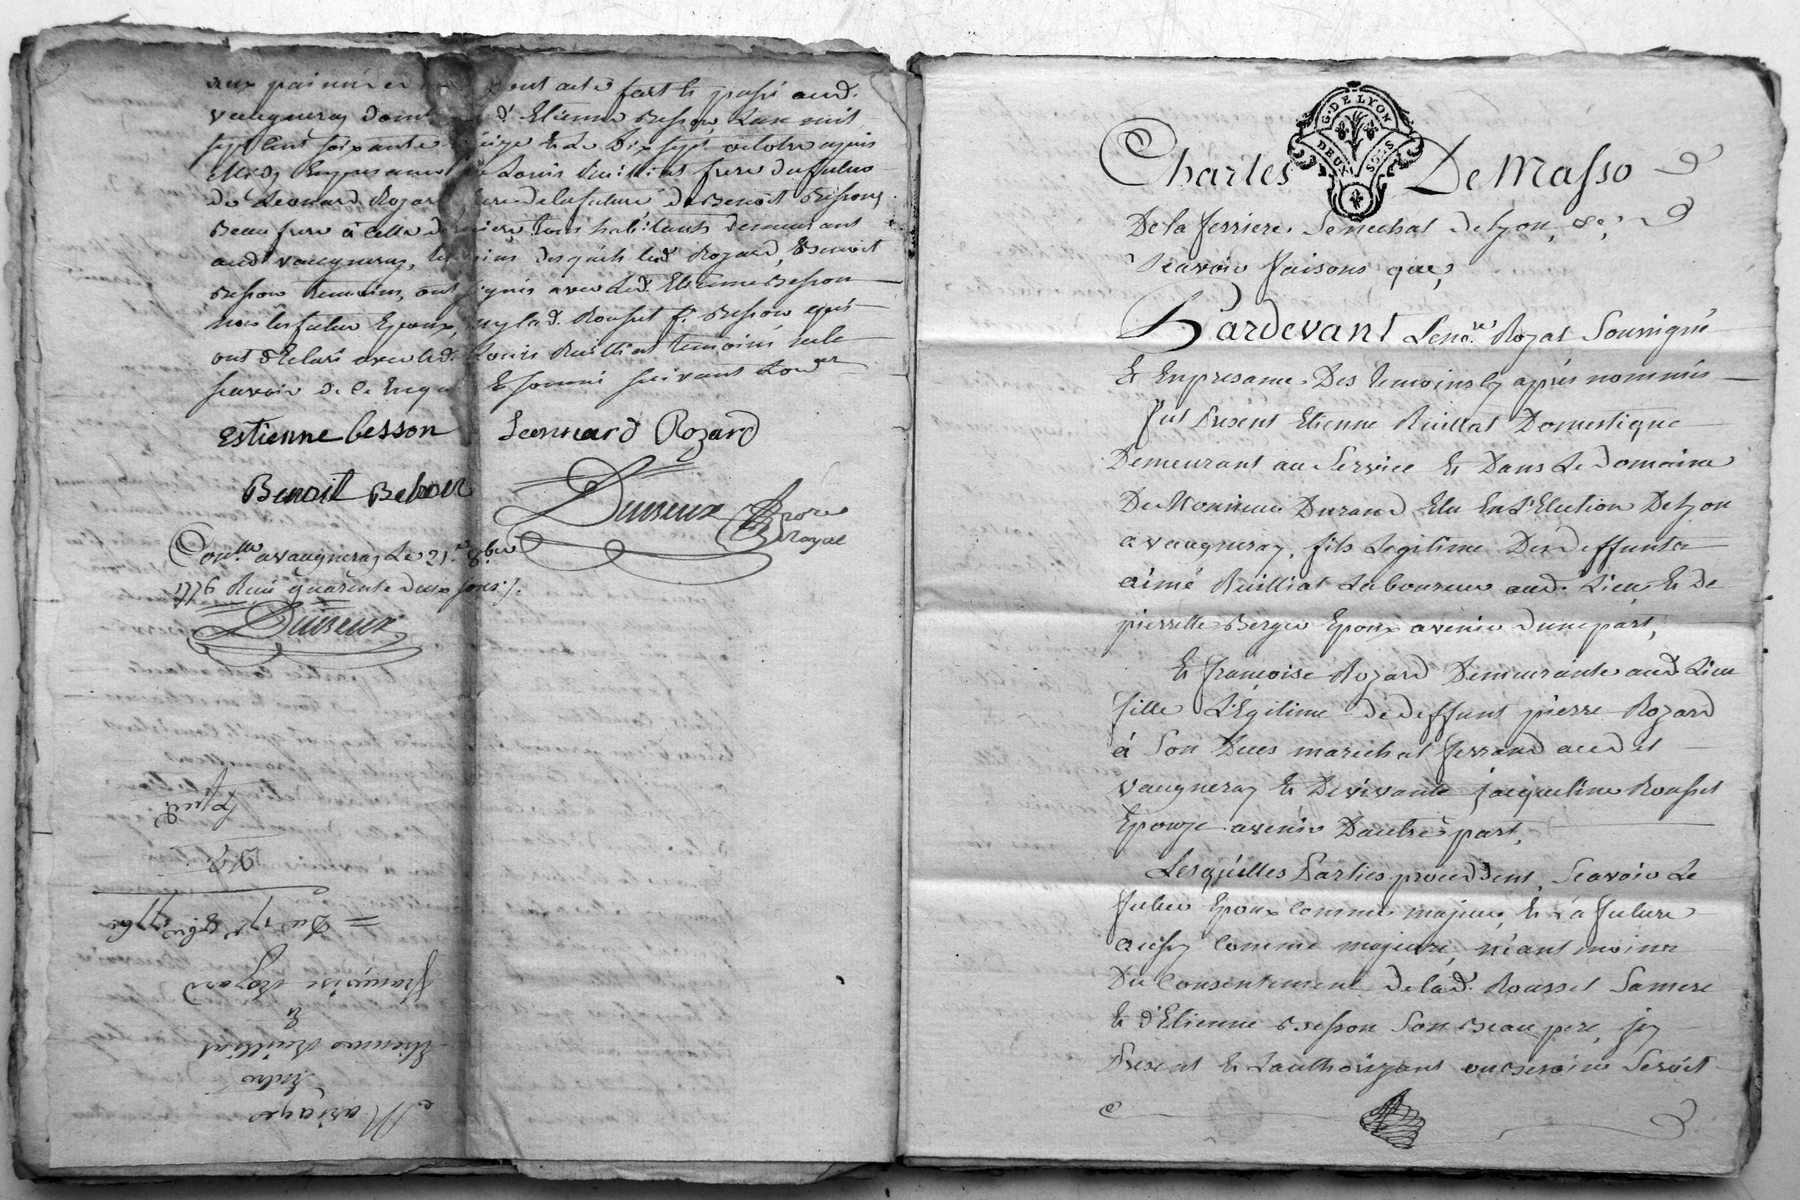 aux parties et dont acte fait & passé aud.
vaugneray domicile d'Etienne Besson, L'an mil
sept cent soixante seize & Le Dix sept octobre après
Midy En presence de Louis Ruillat frere du futur
de Leonard Rozard frere de la future de Benoit Besson
Beau frere à cette derniere tous habitants demeurant
aud. vaugneray, témoins desquels led. Rozard, & Benoit
Besson temoins, ont signé avec led. Etienne Besson
non les futurs Epoux, ny lad. Rousset fe. Besson qui
ont déclaré avec led. Louis Ruilliat temoins ne le
scavoir de ce Enquis & sommé suivant L'ordce
Estienne besson Leonnard Rozard
Benoit Besson
Duvieux Nore Royal
Con.lle a vaugneray Le 21.e 8.bre
1776 Reçu quarente deux sous
Duvieux
Mariage
Entre
Etienne Ruilliat
&
Françoise Rozard
= Du 17e 8bre 1776
Exped.
G. DE LYON
DEUX SOLS
Charles De Masso
De la ferriere, Senechal de Lyon, &c,
Scavoir faisons que,
Pardevant Le no.re Royal Soussigné
Et En presance Des temoins cy après nommés
fut Présent Etienne Ruillat Domestique
Demeurant au Service & Dans Le Domaine
De Monsieur Durand Elu En L'Election De Lyon
a vaugneray, fils Legitime Des deffunts
aimé Ruilliat Laboureur aud. Lieu & De
pierrette Berger Epoux avenir d'une part,
Et francoise Rozard Demeurante aud. Lieu
fille L'Egitime de deffunt pierre Rozard
à Son Deces marechal ferrand audit
vaugneray & De vivante jacqueline Rousset
Epouze avenir D'autre part,
Lesquelles Parties procedent, Scavoir Le
futur Epoux comme majeur, & La future
aussy comme majeure, néant moins
Du Consentement de lad. Rousset Sa mere
& d'Etienne Besson Son Beau pere, icy
Present & L'authorizant ou besoin Seroit